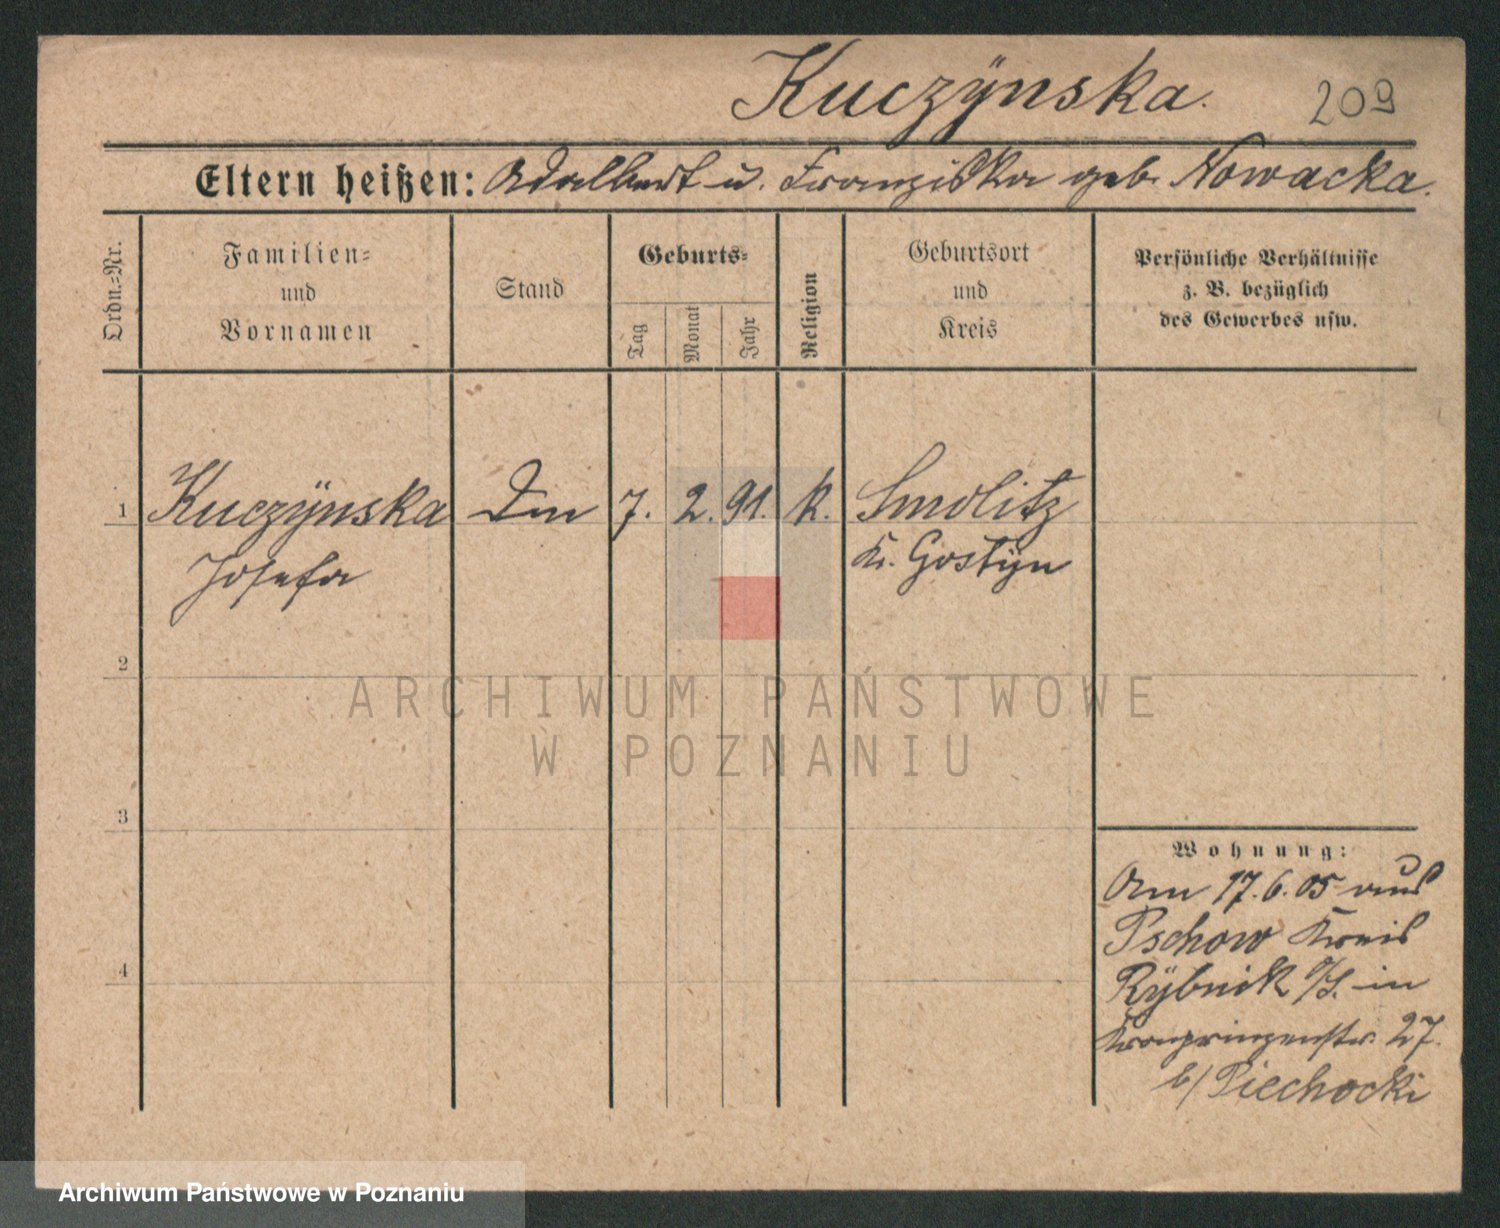 Kuczÿnska.
209
Eltern heißen: Adalbert u. Franziska geb. Nowacka.
Ordn.=Nr.
Familien=
und
Vornamen
Stand
Geburts=
Tag
Monat
Jahr
Religion
Geburtsort
und
Kreis
Persönliche Verhältnisse
z. B. bezüglich
des Gewerbes usw.
1 Kuczÿnska 7. 2. 91. k. Smolitz
Josefa Kr. Gostÿn
2
3
4
Wohnung:
Am 17.6.05 aus
Pschow Kreis
Rÿbnik O/S. in
Kronprinzenstr. 27.
b/ Piechocki
ARCHIWUM PAŃSTWOWE
W POZNANIU
Archiwum Państwowe w Poznaniu